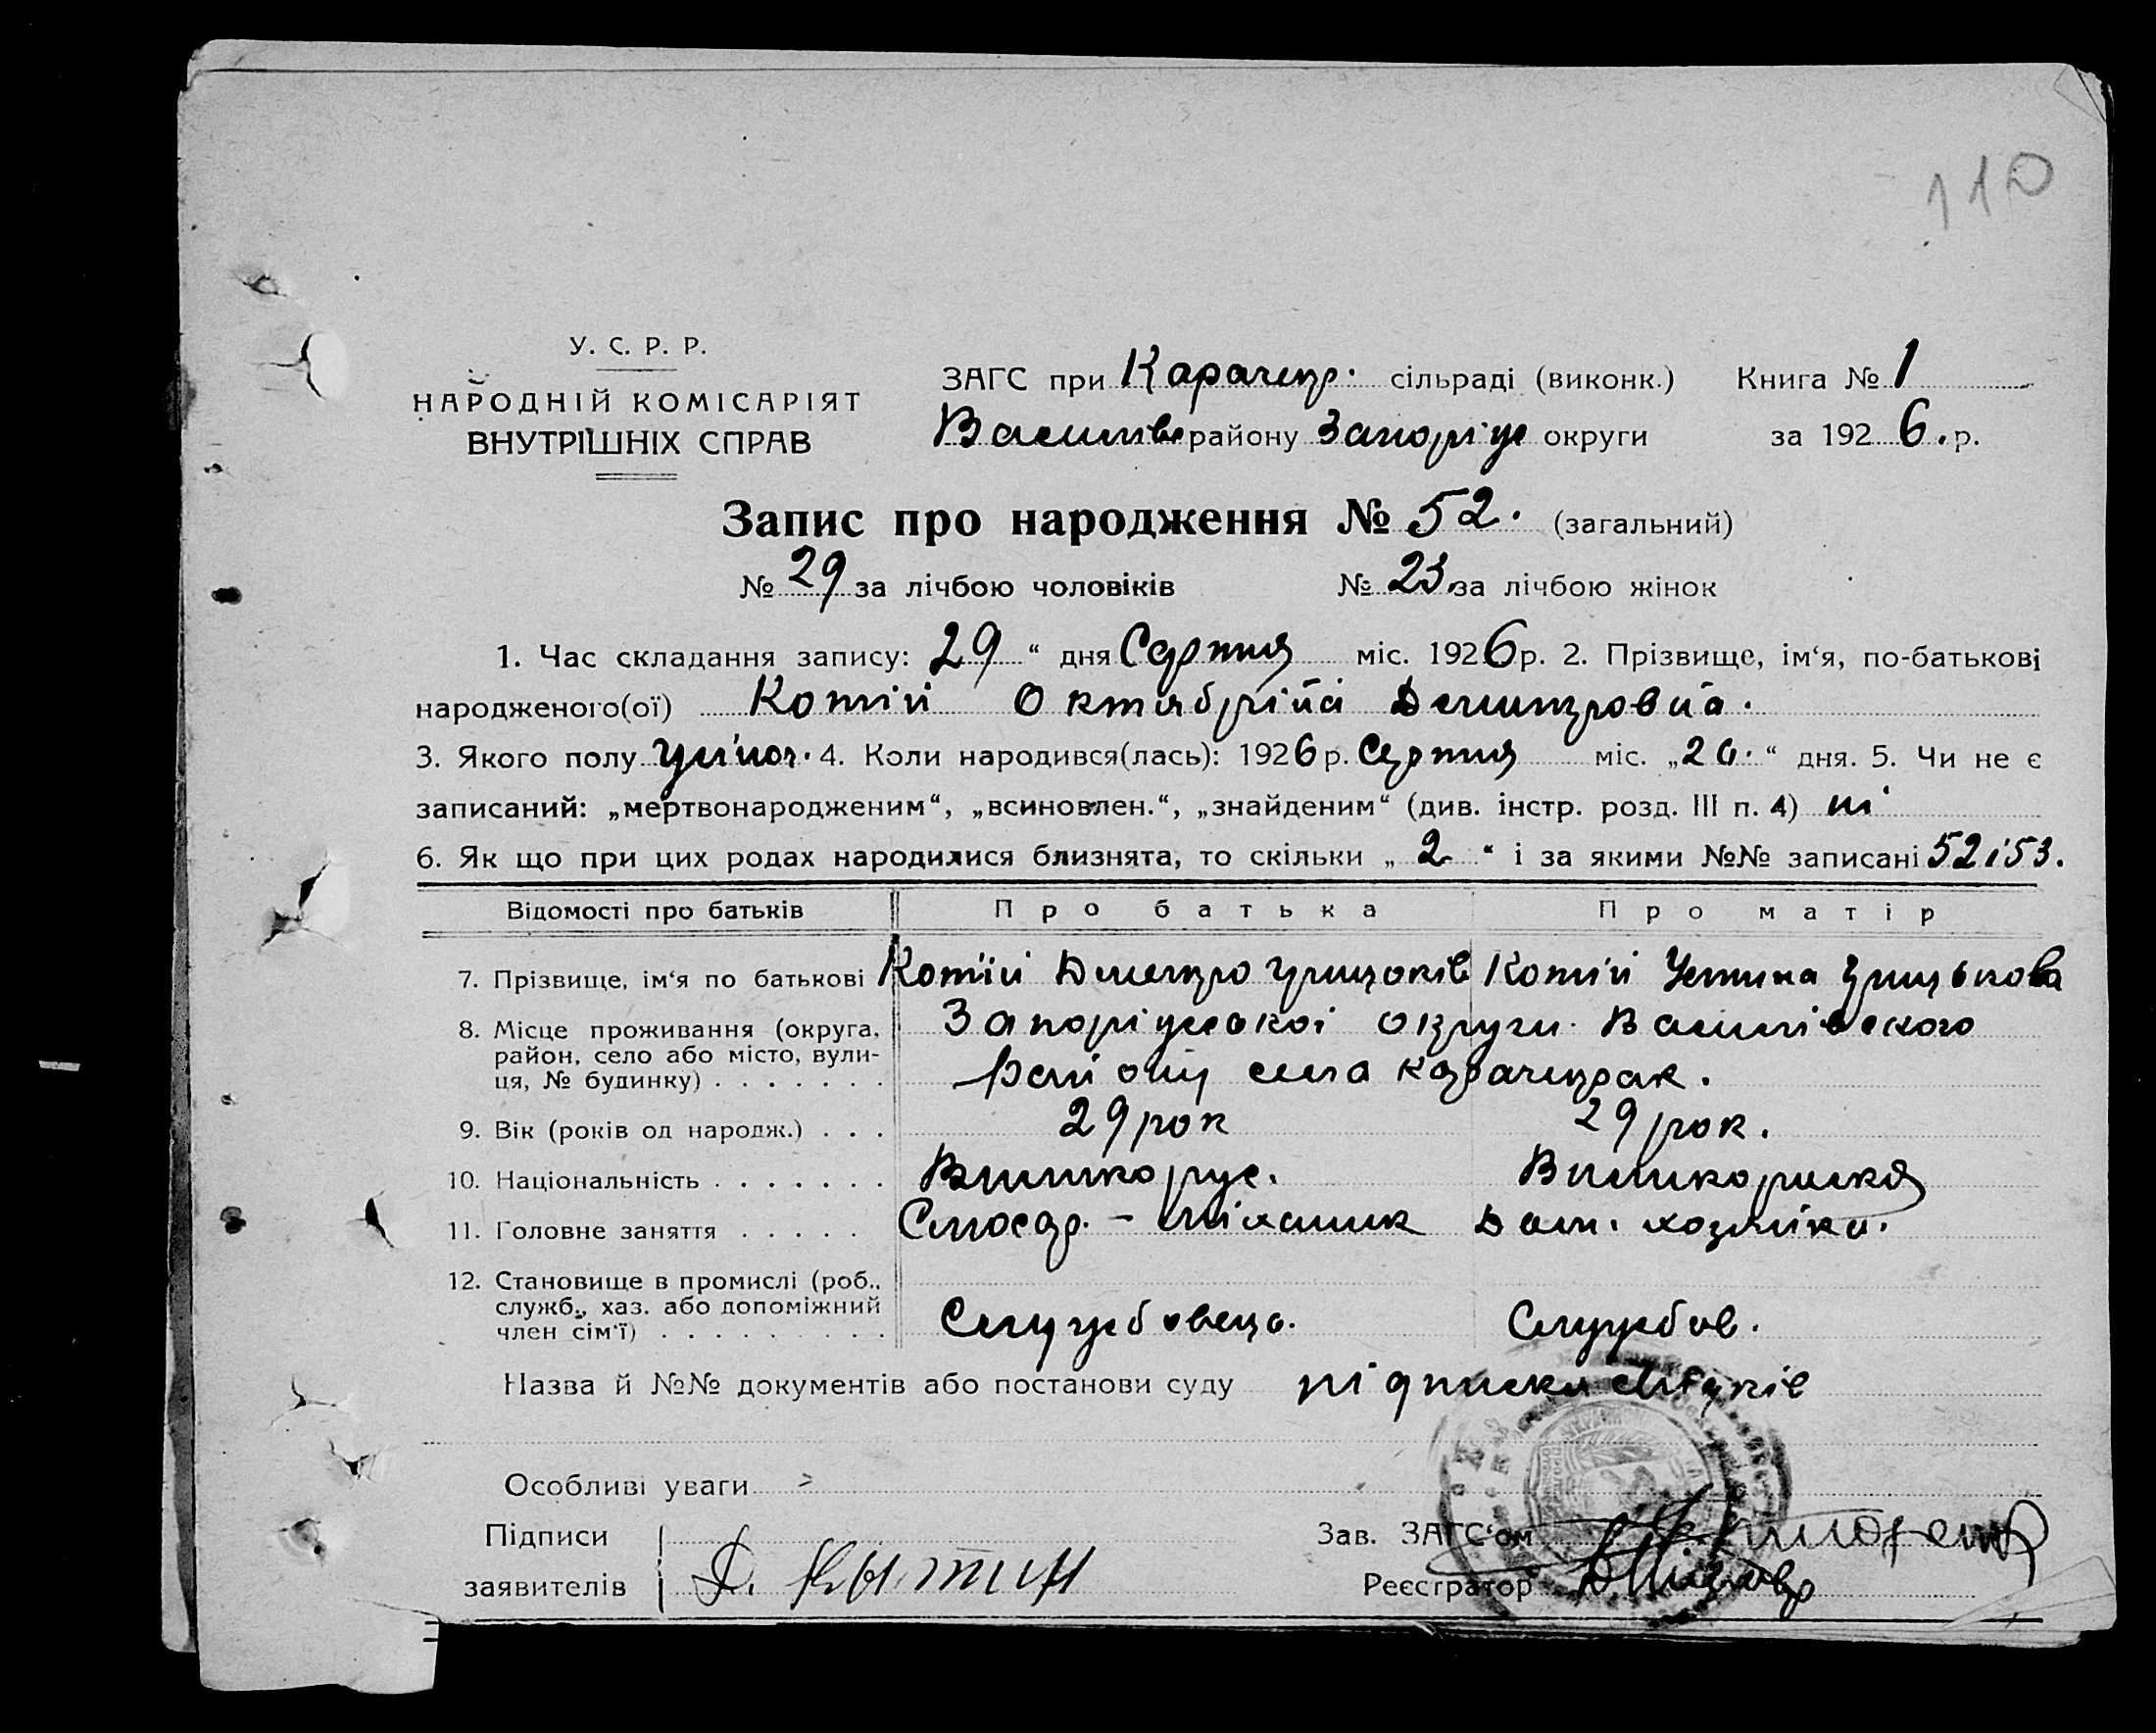 110
У. С. Р. Р.
НАРОДНІЙ КОМІСАРІЯТ
ВНУТРІШНІХ СПРАВ
ЗАГС при Карачекр. сільраді (виконк.) Книга № 1
Василівс району Запоріж округи за 1926. р.
Запис про народження № 52. (загальний)
№ 29 за лічбою чоловіків № 23. за лічбою жінок
1. Час складання запису: 29 “ дня Серпня міс. 1926 р. 2. Прізвище, ім‘я, по-батькові
народженого(ої) Котій Октябріна Демитровна.
3. Якого полу жіноч. 4. Коли народився(лась): 1926 р. Серпня міс. „ “ дня. 5. Чи не є
записаний: „мертвонародженим“, „всиновлен.“, „знайденим“ (див. інстр. розд. III п. 4) ні
6. Як що при цих родах народилися близнята, то скільки „ 2 “ і за якими №№ записані 52 і 53.
Відомості про батьків Про батька Про матір
7. Прізвище, ім‘я по батькові Котій Демитро Грицьків Котій Устина Грицькова
8. Місце проживання (округа, Запоріжської округи Василівского
район, село або місто, вули- району села Карачекрак.
ця, № будинку) . . . . . . .
9. Вік (років од народж.) . . . 29 рок 29 рок.
10. Національність . . . . . . . Великорус. Великоруска
11. Головне заняття . . . . . Слюсар. – механик Дом. хозяйка.
12. Становище в промислі (роб.,
служб., хаз. або допоміжний Службовець. Службов.
член сім‘ї) . . . . . . . . .
Назва й №№ документів або постанови суду підписка
Особливі уваги
Підписи Зав. ЗАГС‘ом
заявителів Д. Реєстратор